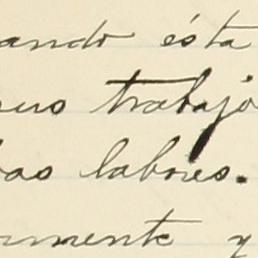 ando ésta
sus trabajo
bas labores.
rmente y